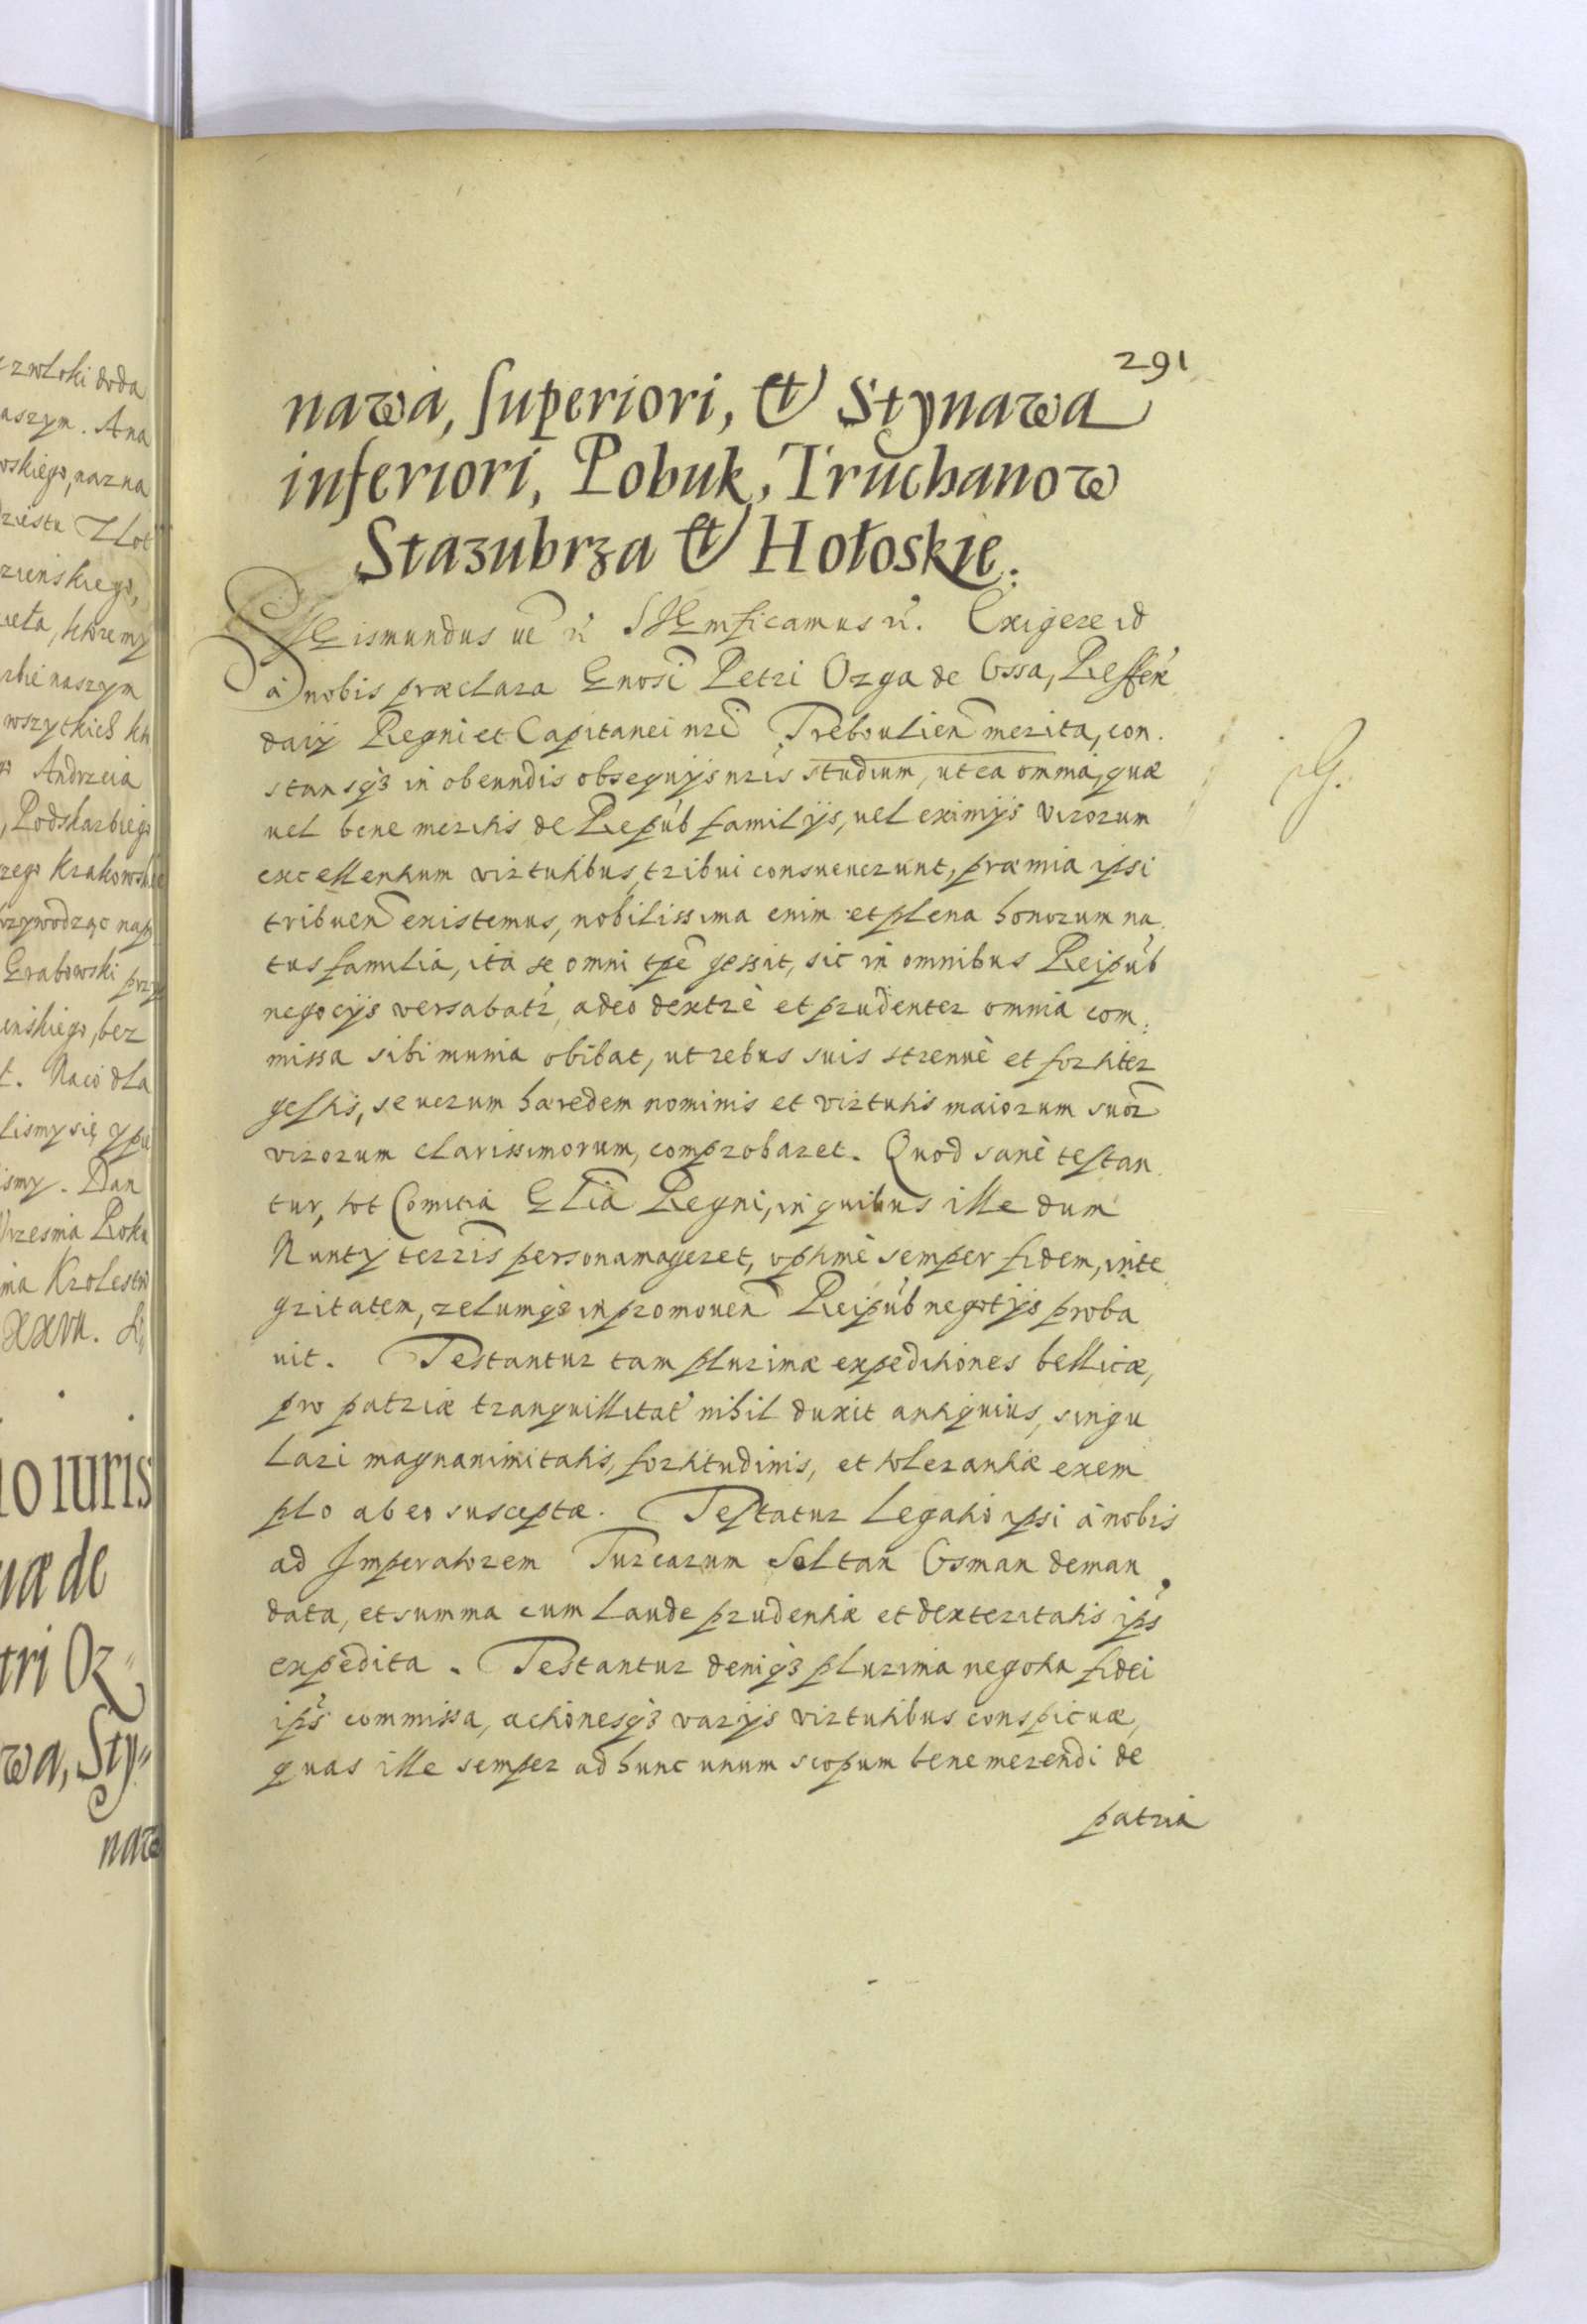 zwłoki doda
aszym. Ana
oskiego, nazna
Złot
zieńskiego,
naszym
wszytkich
Andrzeia
, Podskarbiego
rzego Krakowskie
Grabowski przy
ieńskiego, bez
t. Naco dla
ismy. Dan
ma Krolestw
XXVII.
io iuris
uæ de
tri Oz
wa, Sty
naw
291
nawa, superiori, et Stynawa
inferiori, Pobuk, Truchanow
Stazubrza et Hołoskie.
Sigismundus ut n̄ Significamus n̄. Exigere id
à nobis præclara Gnosi Petri Ozga de Ossa, Reffen
darij Regni et Capitanei nri Treboulien merita, con
stansq3 in obeundis obsequijs nris studium, ut ea omnia, quæ
uel bene meritis de Repub familijs, uel eximijs virorum
excellentium virtutibus, tribui consueuerunt, præmia ipsi
tribuen existemus, nobilissima enim et plena honorum na
tus familia, ita se omni tpe gessit, sic in omnibus Reipub
negocijs versabatr, adeò dextrè et prudenter omnia com
missa sibi munia obibat, ut rebus suis strenuè et fortiter
gestis, se uerum hæredem nominis et virtutis maiorum suor
virorum clarissimorum, comprobaret. Quod sanè testan
tur, tot Comitia Glia Regni, in quibus ille dum
Nuntij terris personam ageret, optimè semper fidem, inte
gritatem, zelumq3 in promouen Reipub negotijs proba
uit. Testantur tam plurimæ expeditiones bellicæ,
pro patriæ tranquillitat nihil duxit antiquius, singu
lari magnanimitatis, fortitudinis, et tolerantiæ exem
plo ab eo susceptæ. Testatur Legatio ipsi à nobis
ad Imperatorem Turcarum Soltan Osman deman
data, et summa cum laude prudentiæ et dexteritatis ips
expedita. Testantur deniq3 plurima negotia fidei
ips commissa, actionesq3 varijs virtutibus conspicuæ,
quas ille semper ad hunc unum scopum bene merendi de
patria